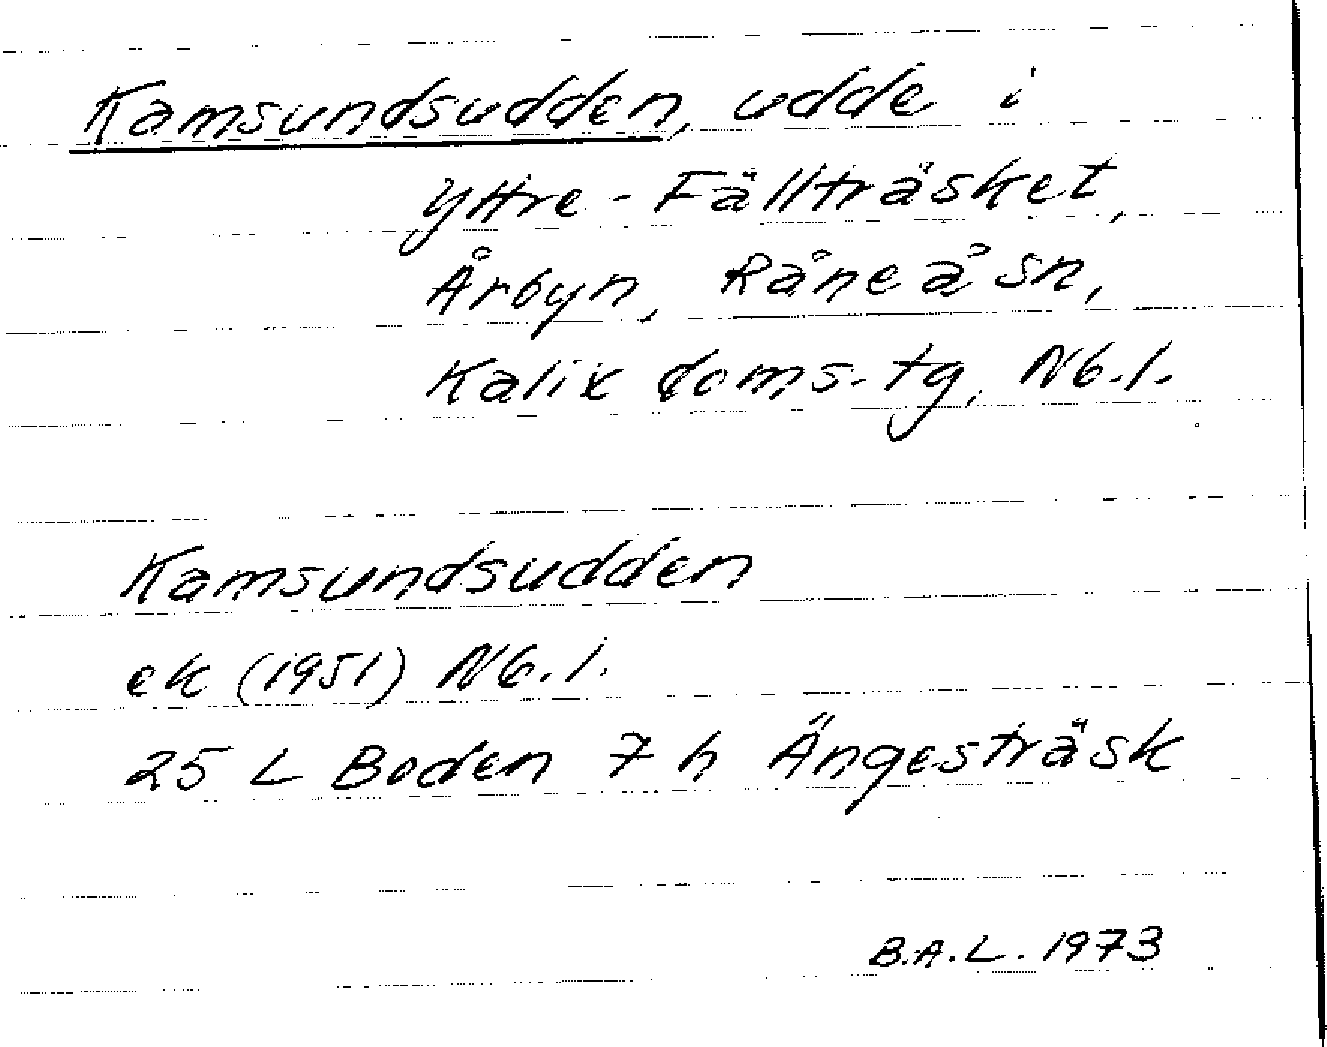 Kamsundsudden, udde i
Yttre-Fällträsket,
Årbyn, Råneå sn,
Kalix doms.tg, Nb.l.
Kamsundsudden
ek (1951) Nb.l.
25 L Boden 7 h Ängesträsk
B.A.L. 1973